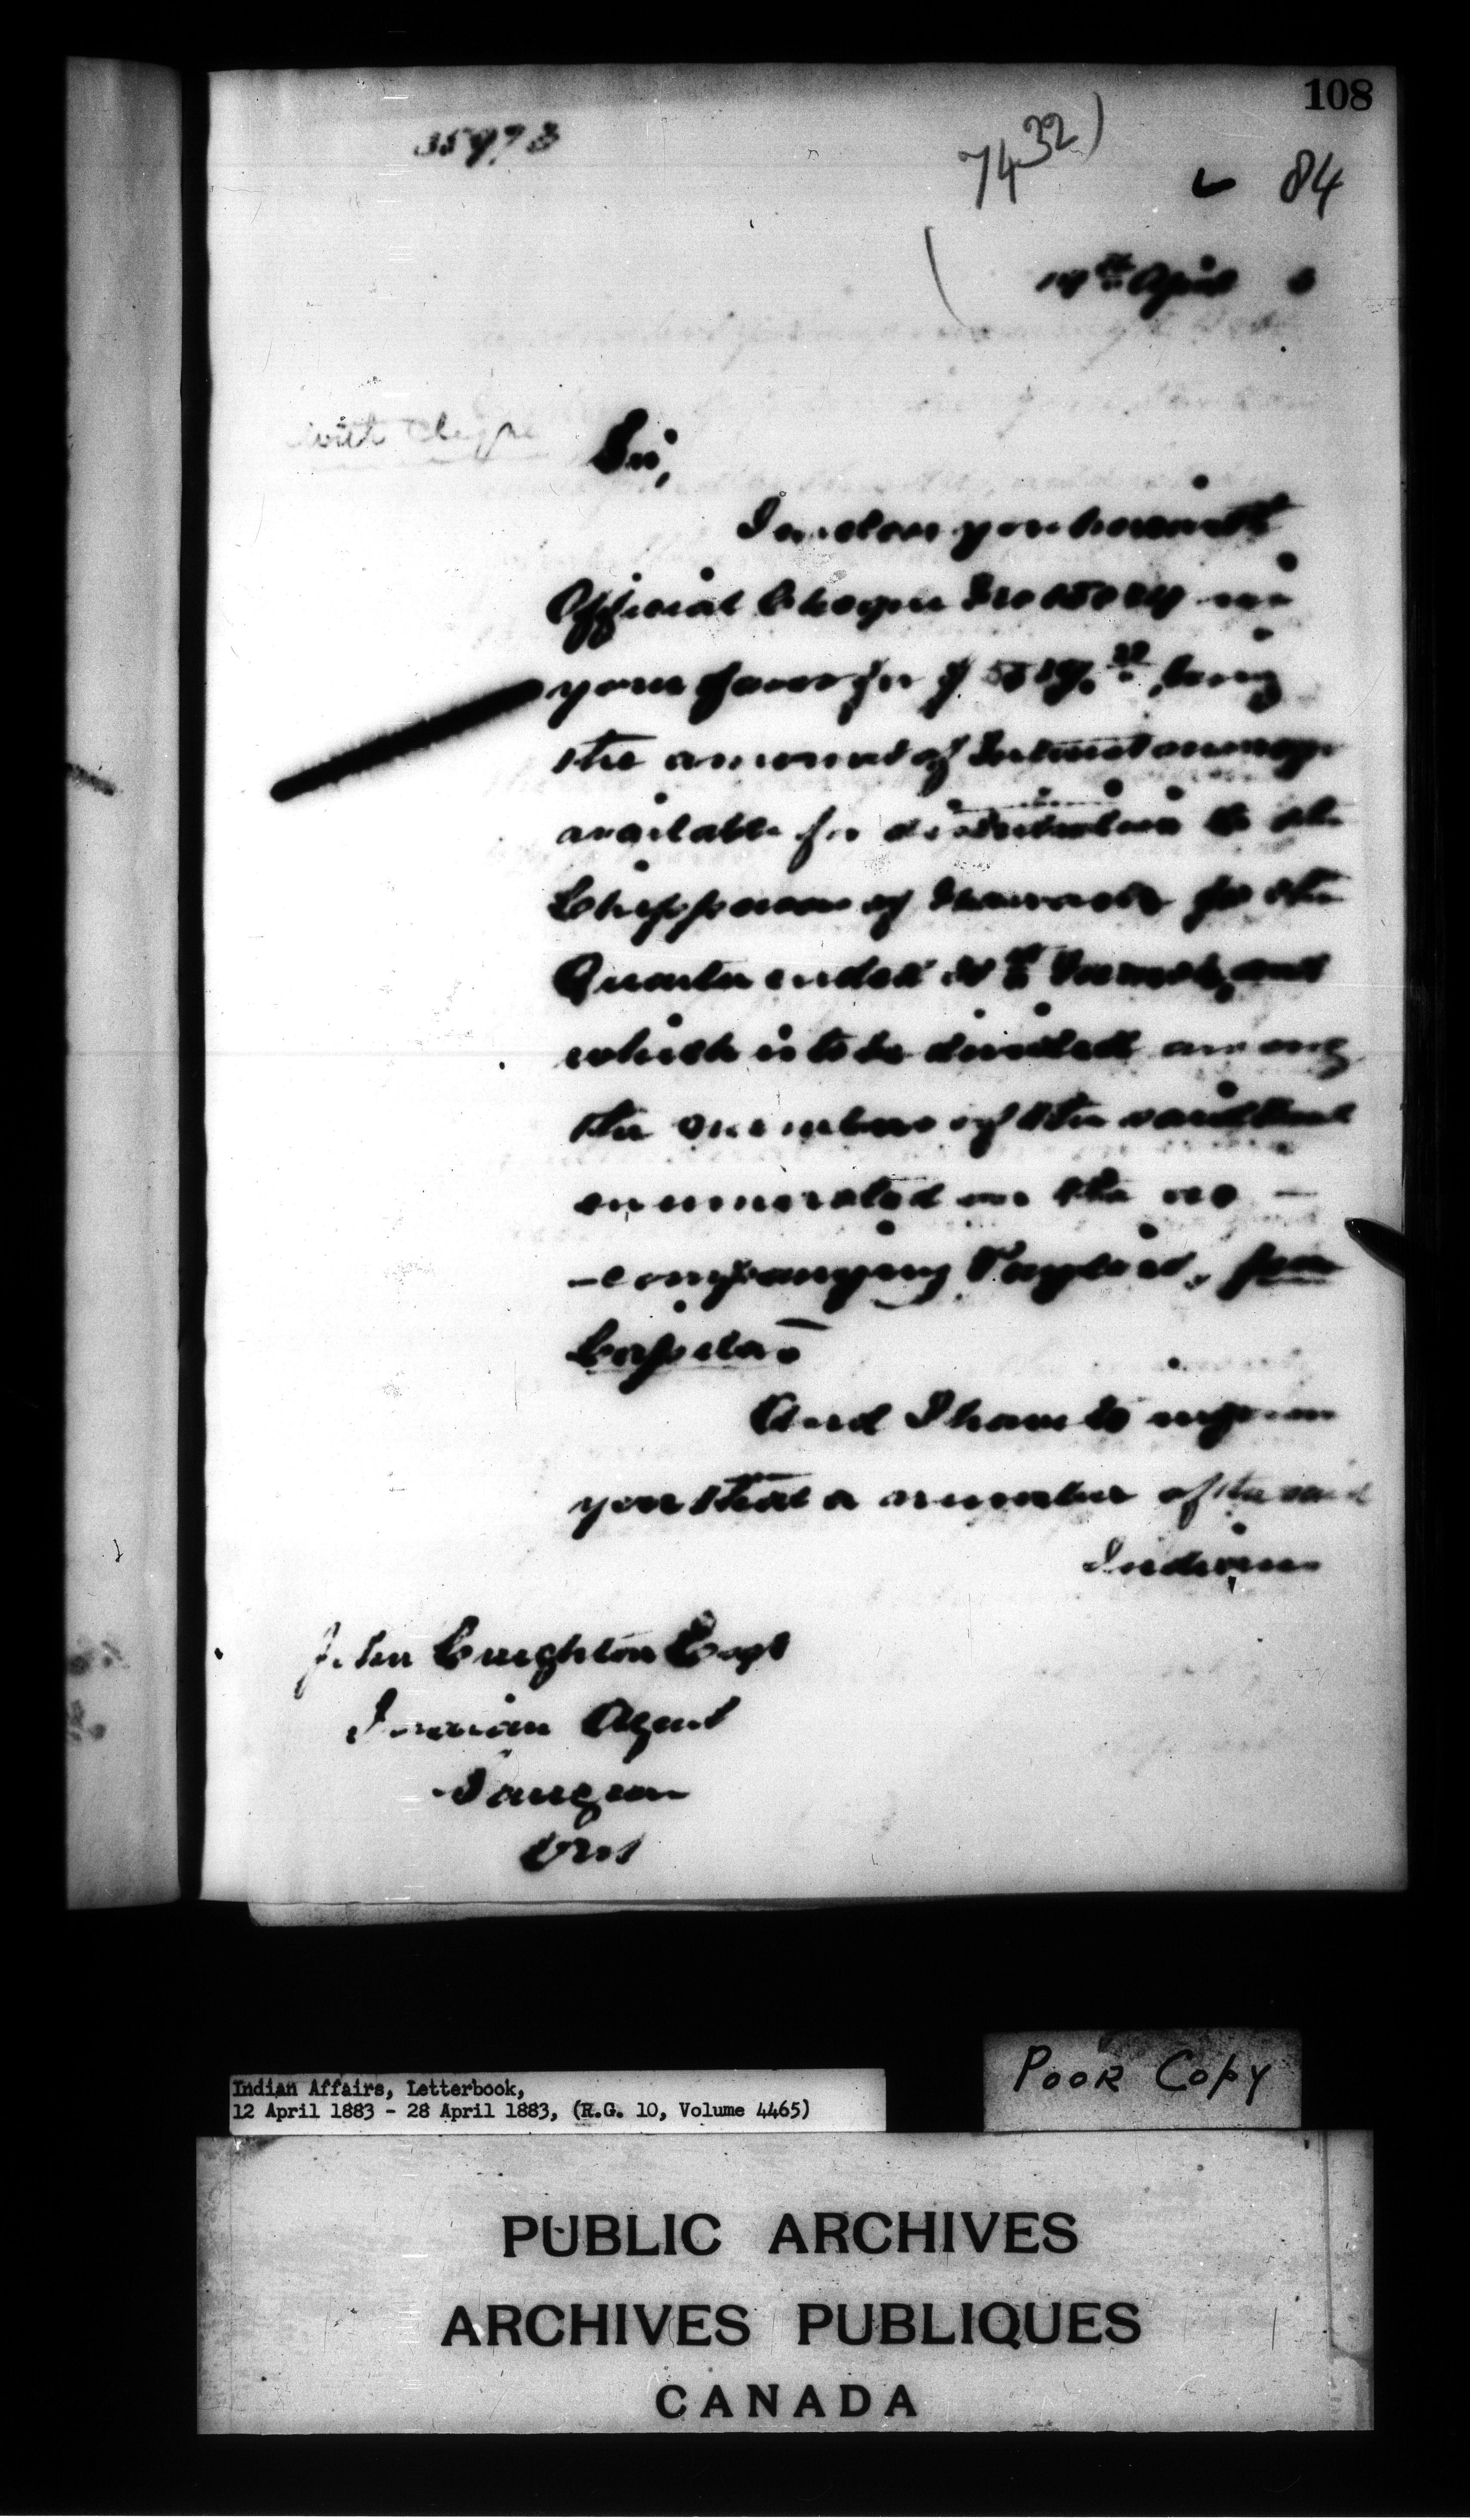 108
35973
7432)
84
April
with cheque
Sir,
I enclose you herewith
Official Cheque No
your favor for $ being
the amount of Interest money
available for distribution to the
Chippewas of for the
Quarter ended and
which is to be divided among
the members of the said Band
enumerated on the ac -
- companying Paylist, per
Capita
And I have to inform
you that a number of the said
Indians
John Creighton Esqr
Indian Agent
Saugeen
Ont
Indian Affairs, Letterbook,
12 April 1883 - 28 April 1883, (R.G. 10, Volume 4465)
POOR COPY
PUBLIC ARCHIVES
ARCHIVES PUBLIQUES
CANADA